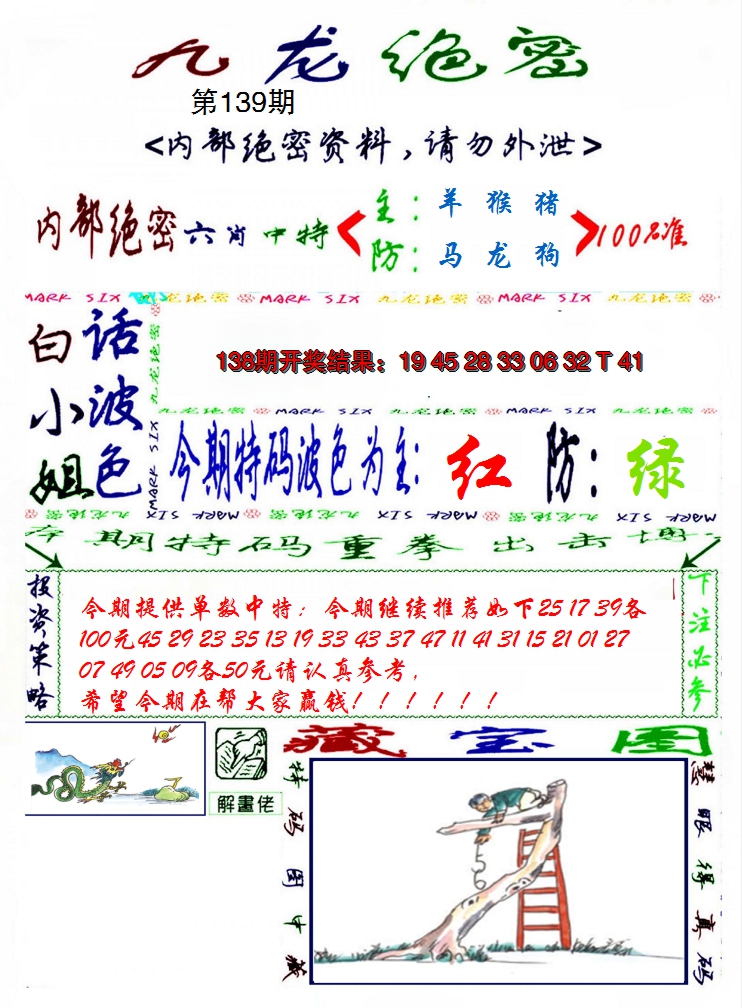 九龙绝密
第139期
<内部绝密资料,请勿外泄>
内部绝密六肖中特
主：羊 猴 猪
防：马 龙 狗
100%准
MARK SIX 九龙绝密 MARK SIX 九龙绝密 MARK SIX 九龙绝密
白小姐
话波色
九龙绝密 MARK SIX
138期开奖结果：19 45 28 33 06 32 T 41
九龙绝密 MARK SIX 九龙绝密 MARK SIX 九龙绝密
今期特码波色为主：红 防：绿
MARK SIX 九龙绝密 MARK SIX 九龙绝密 MARK SIX
期特码重拳出击
投资策略
今期提供单数中特；今期继续推荐如下25 17 39各
100元45 29 23 35 13 19 33 43 37 47 11 41 31 15 21 01 27
07 49 05 09各50元请认真参考,
希望今期在帮大家赢钱！！！！！！
下注必参
解畫佬
藏宝图
特码图中藏
慧眼得真码